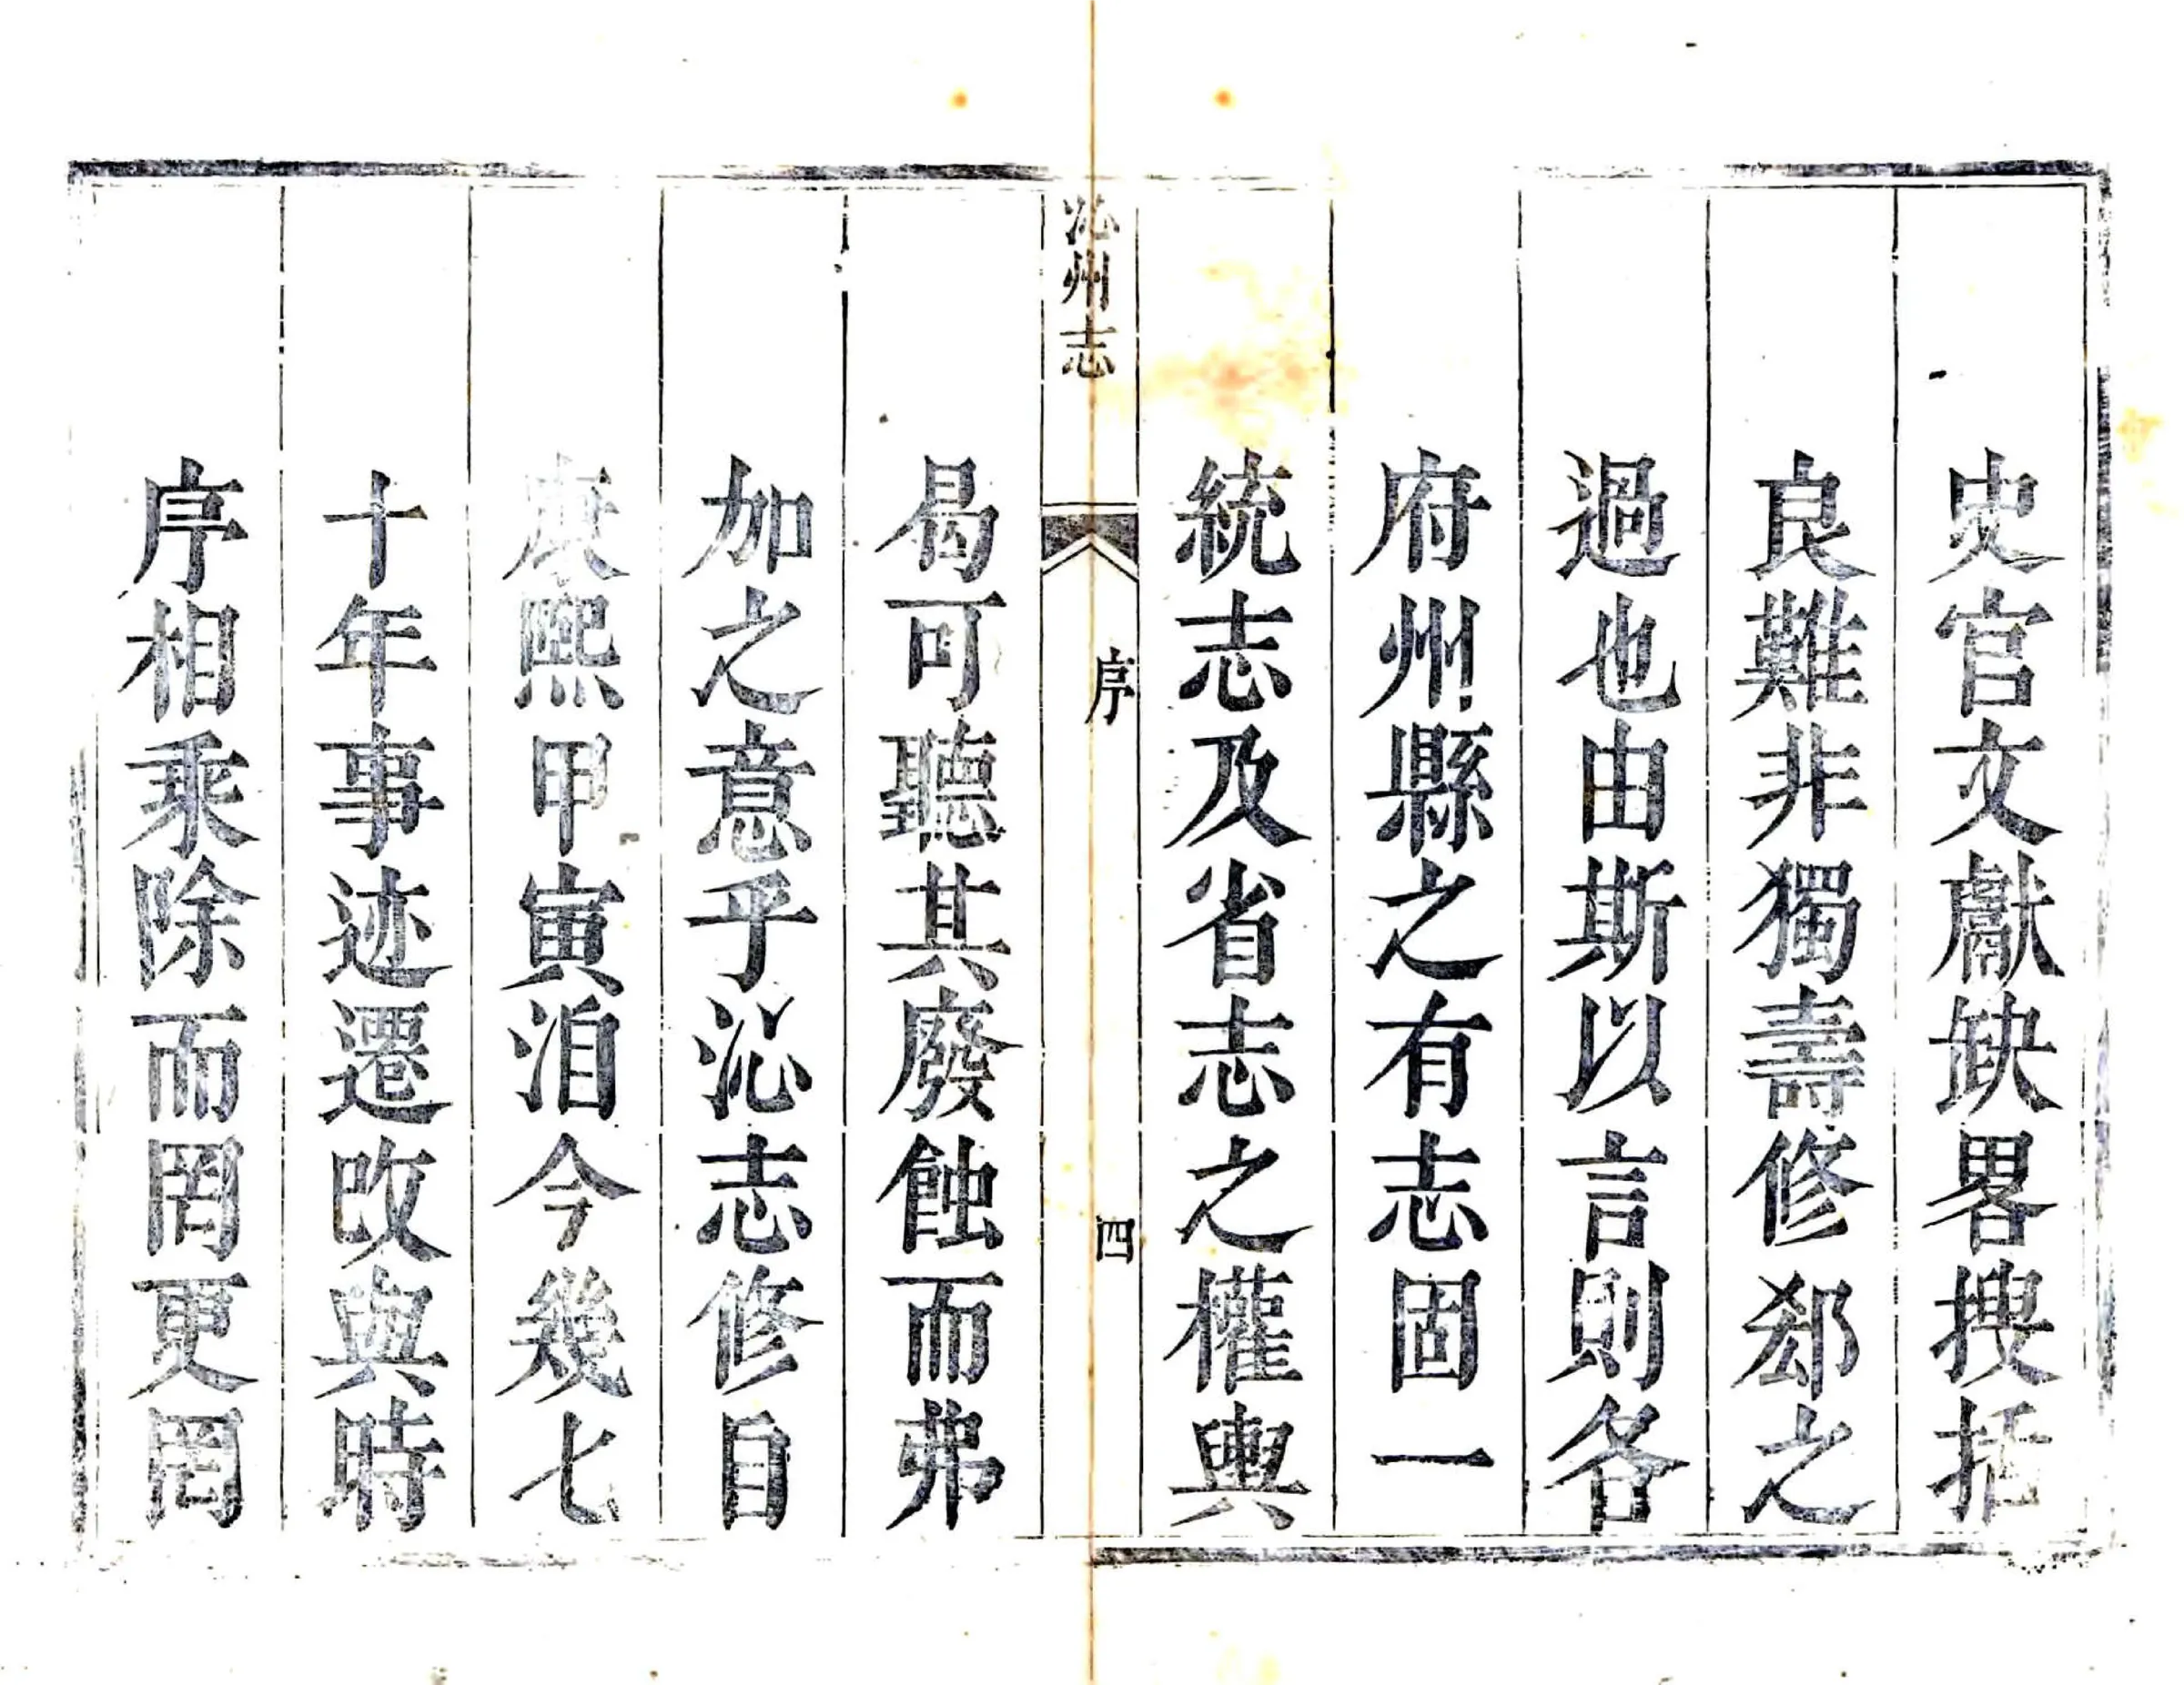 史官文獻缺畧搜括
良難非獨壽修郄之
過也由斯以言則各
府州縣之有志固一
統志及省志之權輿
沁州志
序
四
曷可聽其廢蝕而弗
加之意乎沁志修自
康熙甲寅洎今幾七
十年事迹遷改與時
序相乘除而罔更罔